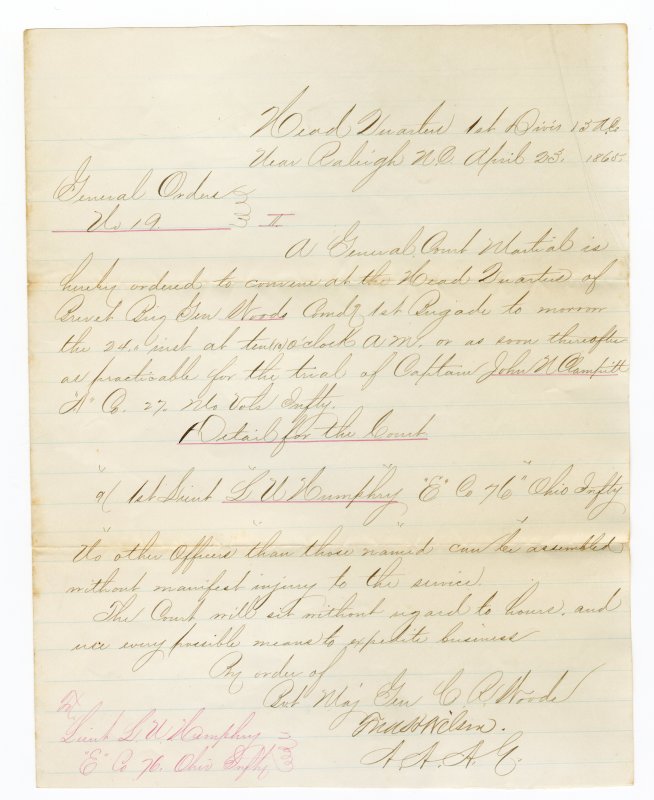 Head Quarters 1st Divis 15 A.C.
Near Raleigh N.C. April 23. 1865.
General Orders
No 19.
II
A General Court Martial is
hereby ordered to convene at the Head Quarters of
Brevet Brig Gen Woods Comdg 1st Brigade to morrow
the 24. inst at ten (10) o clock A.M. or as soon thereafter
as practicable for the trial of Captain John N Clampitt
"A" Co. 27. Mo Vols Infty.
Detail for the Court
9/ 1st Lieut "L U Humphry" "E" Co 76" Ohio Infty
" " " "
No other Officers than those named can be assembled
without manifest injury to the service.
The Court will sit without regard to hours, and
use every possible means to expedite business
By order of
Bvt Maj Gen C R Woods
Fred H Wilson.
A. A. A. G.
To
Lieut L. U. Humphry
"E" Co 76. Ohio Infty